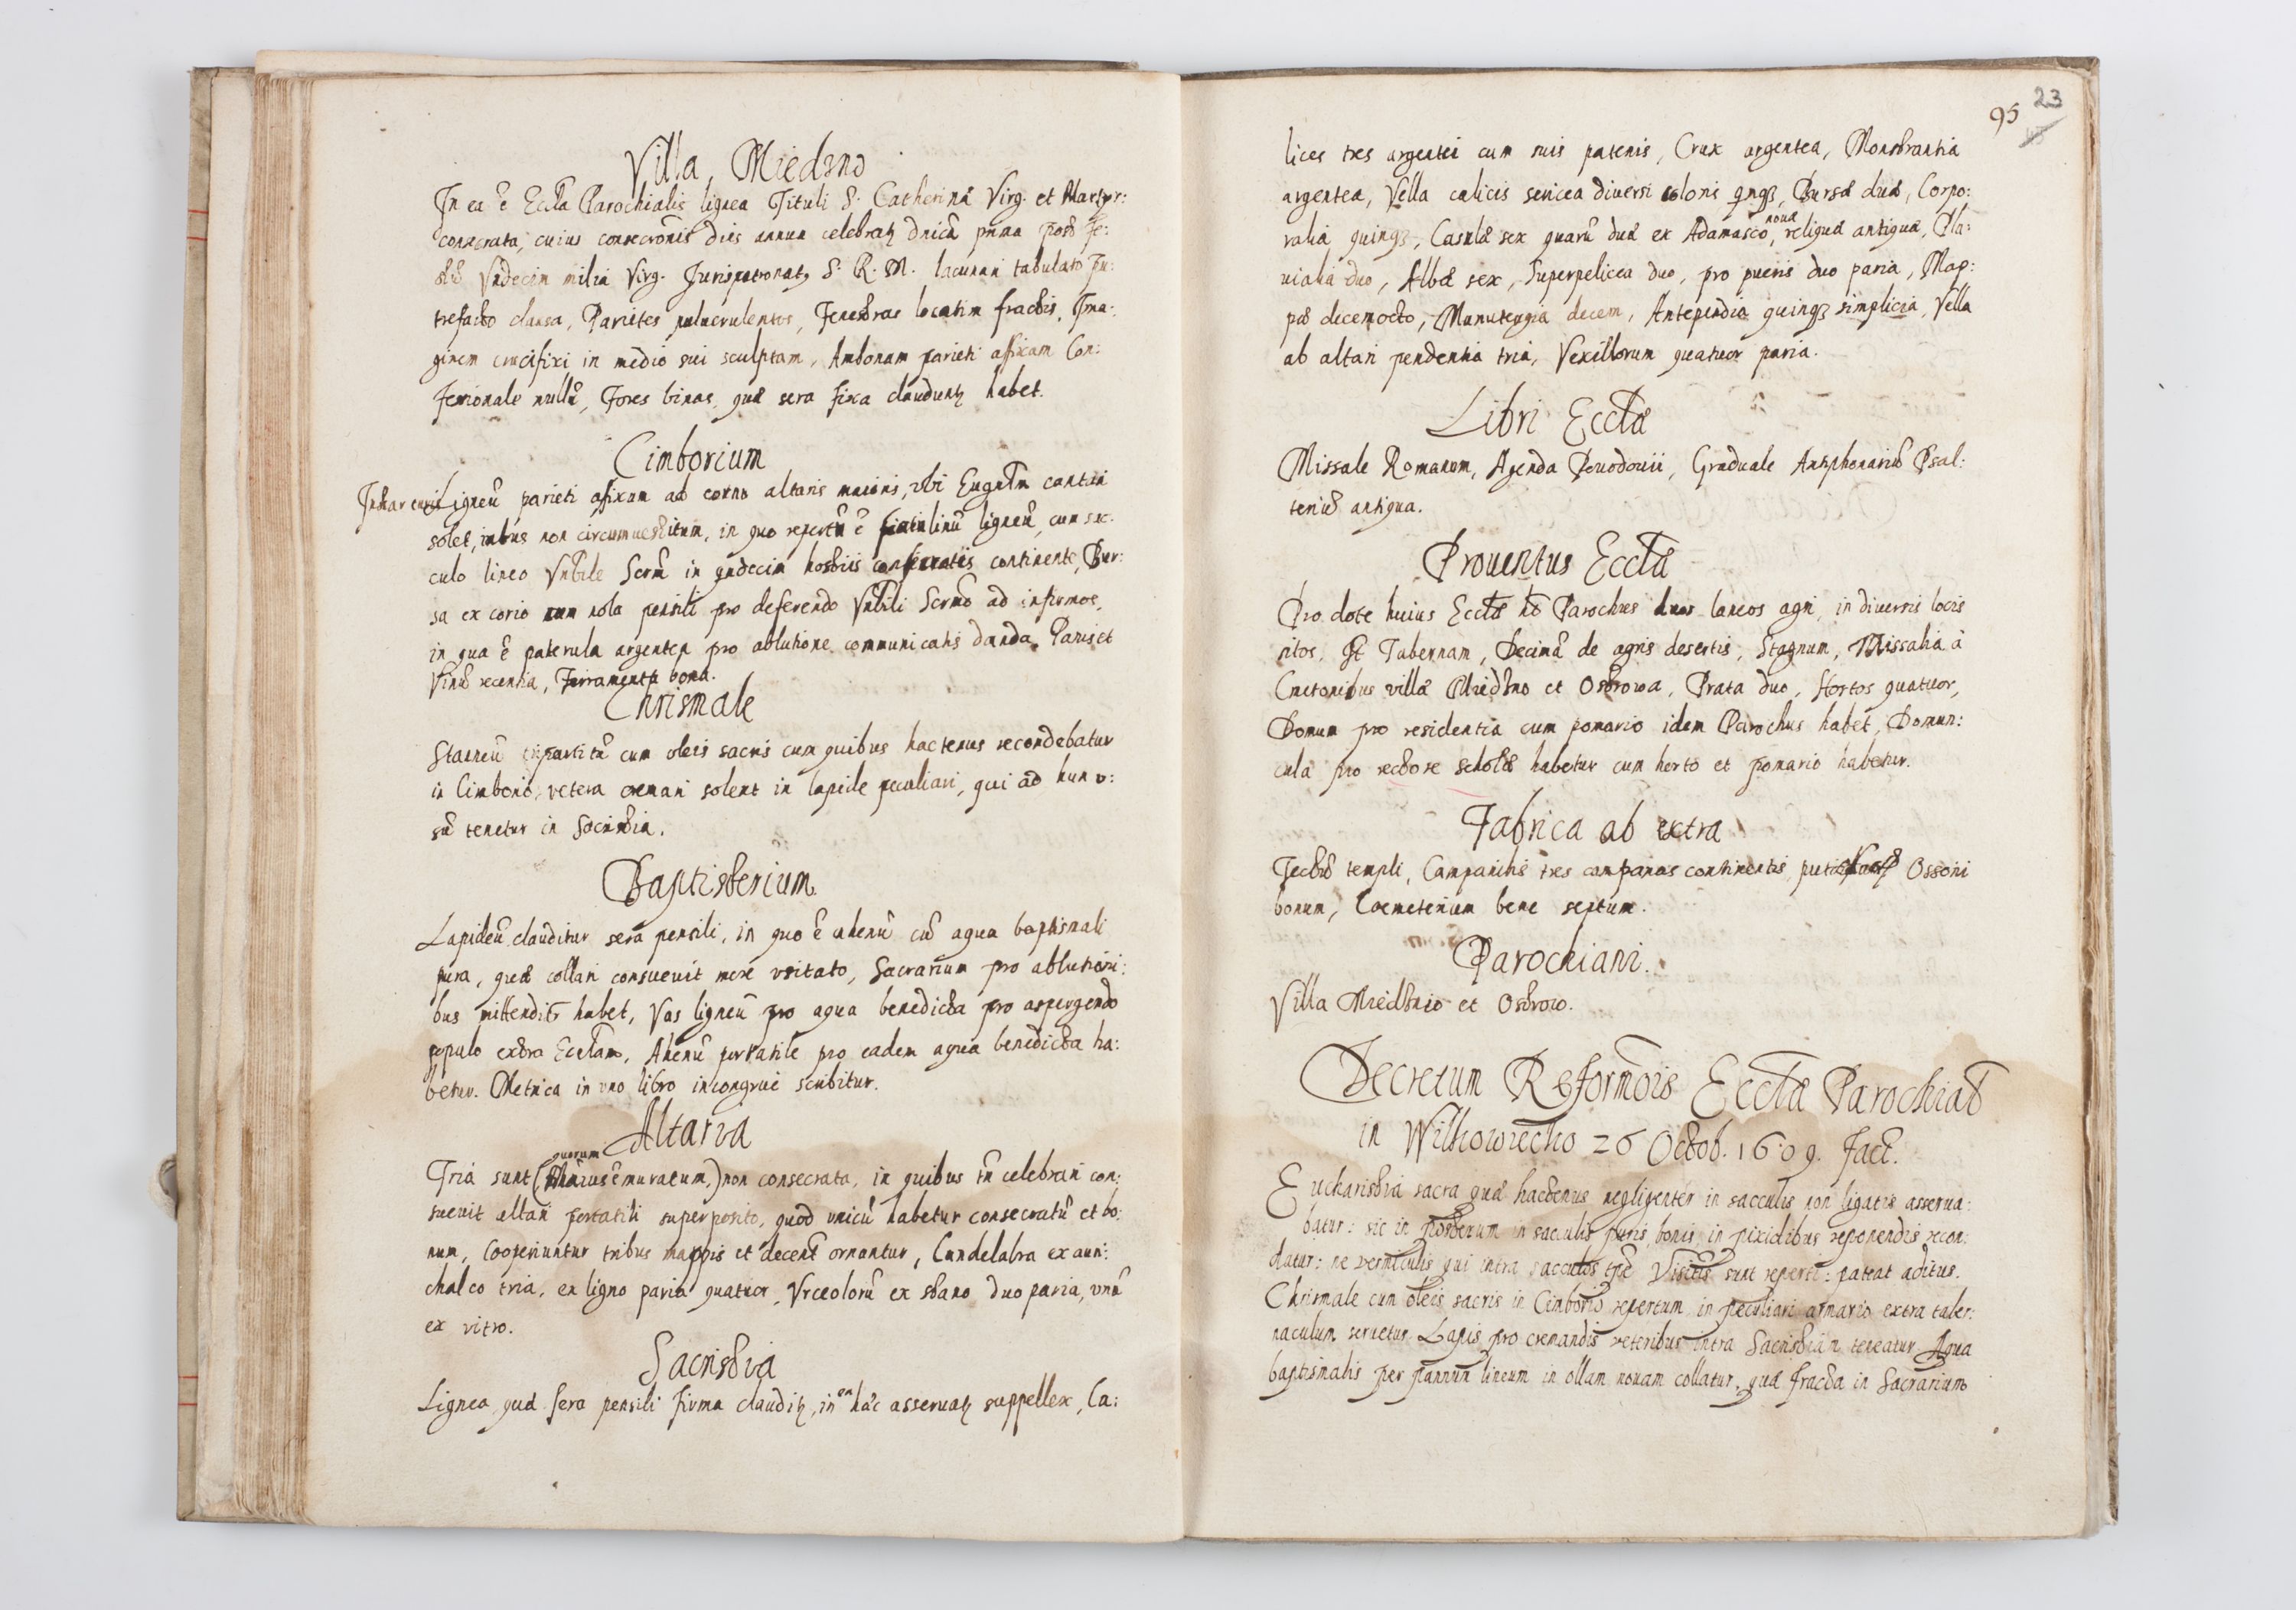 Villa Miedzno
In ea ē Eccta Parochialis lignea Tituli S. Catherinæ Virg. et Martyr:
consecrata, cuius consecrōnis dies annua celebratʒ dnicā prima post fe:
stū Vndecim milia Virg. Jurispatronatq S. R. M. lacunari tabulato pu:
trefacto clausa, Parietes puluerulentos, Fenestras locatim fractas, Ima:
ginem crucifixi in medio sui sculptam, Ambonam parieti affixam Con:
fessionale nullū, Fores binas quæ sera fixa claudunʒ habet.
Cimborium
Instar Ligneū parieti affixum ad cornu altaris maioris, vbi Eugnlm cantari
solet, intus non circumuestitum, in quo repertū ē ligneū, cum sac:
culo lineo Vnbile Scrm in vndecim hostiis consecratis continente, Bur:
sa ex corio cum nola pensili pro deferendo Vnbili Scrmo ad infirmos,
in qua ē paterula argentea pro ablutione communicatis danda. Panis et
Vinū recentia, Ferramenta bona.
Chrismale
Stanneū tripartitū cum oleis sacris cum quibus hactenus recondebatur
in Cimborio, vetera cremari solent in lapide peculiari, qui ad hun v:
sū tenetur in Sacristia.
Baptisterium
Lapideū clauditur sera pensili, in quo ē ahenū cū aqua baptismali
pura, quæ collari consueuit more vsitato, Sacrarium pro ablutioni:
bus mittendis habet, Vas ligneū pro aqua benedicta pro aspergendo
populo extra Ecctam, Ahenū portatile pro eadem aqua benedicta ha:
betur. Metrica in vno libro incongrue scribitur.
Altaria
quorum
Tria sunt (Maius ē muratum,) non consecrata, in quibus tn celebrari con:
sueuit altari portatili superposito, quod vnicū habetur consecratū et bo:
num, Cooperiuntur tribus mappis et decent ornantur, Candelabra ex auri:
chalco tria, ex ligno paria quatuor, Vrceolorū ex stano duo paria, vnū
ex vitro.
Sacristia
Lignea quæ sera pensili firma clauditʒ, in hac asseruatʒ suppellex, Ca:
95 23
lices tres argentei cum suis patenis, Crux argentea, Monstrantia
argentea, Vella calicis sericea diversi coloris qnqʒ, Bursæ duæ, Corpo:
ralia quinqʒ, Casulæ sex quarū duæ ex Adamasco nouæ, reliquæ antiquæ, Pla:
uialia duo, Albæ sex, Superpelicea duo, pro pueris duo paria, Map:
pæ decemocto, Manutergia decem, Antependia quinqʒ simplicia, Vella
ab altari pendentia tria, Vexillorum quatuor paria.
Libri Ecctæ
Missale Romanum, Agenda Powodowii, Graduale Antiphonariū Psal:
teriū antiqua.
Prouentus Ecctæ
Pro dote huius Ecctæ ht Parochus duos laneos agri, in diuersis locis
sitos, It Tabernam, Decimā de agris desertis, Stagnum, Missalia à
Cmetonibus villæ Miedzno et Ostrowa, Prata duo, Hortos quatuor,
Domum pro residentia cum pomario idem Parochus habet, Domun:
cula pro rectore scholæ habetur cum horto et pomario habetur.
Fabrica ab extra
Tectū templi, Campanilis tres campanas continentis, Ossorii
bonum, Coemeterium bene septum.
Parochiani.
Villa Miedznio et Ostrow.
Decretum Reformōis Ecctæ Parochial
in Wilkowiecko 26 Octob. 1609. fact.
Eucharistia sacra quæ hactenus negligenter in sacculis non ligatis asserua:
batur: sic in posterum in sacculis puris, bonis, in pixidibus reponendis recon:
datur: ne vermiculis qui intra sacculos tpe Visitis sunt reperti: pateat aditus.
Chrismale cum oleis sacris in Cimborio repertum in peculiari armario extra taber:
naculum seruetur. Lapis pro cremandis veteribus intra Sacristiam teneatur. Aqua
baptismalis per pannum lineum in ollam nouam collatur, quæ fracta in Sacrarium